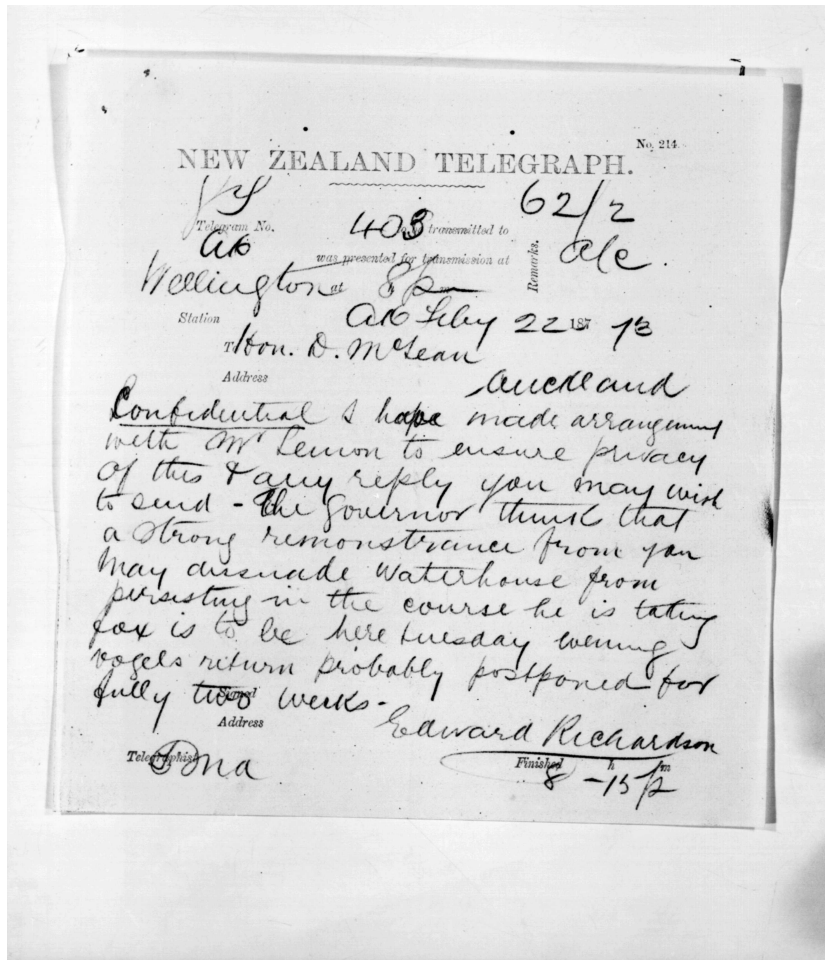 No. 214.
NEW ZEALAND TELEGRAPH.
62/2
Telegram No. 403 transmitted to
Ak
was presented for transmission at
Remarks. a/c
Wellington at 8 p m
Station Ak Feby 22 187 73
T Hon. D. McLean
Address
Auckland
Confidential I have made arrangement
with Mr Lemon to ensure privacy
of this & any reply you may wish
to send - The Governor thinks that
a strong remonstrance from you
may dissuade Waterhouse from
persisting in the course he is taking
Fox is to be here tuesday evening
vogels return probably postponed for
fully two weeks -
Signed
Address
Edward Richardson
Telegraphist
Finished h m
8 - 15 p